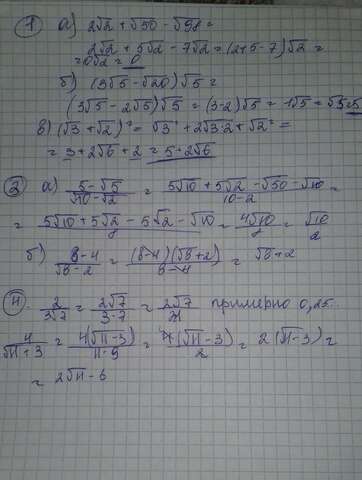 ① а) 2√2 + √50 - √98 =
2√2 + 5√2 - 7√2 = (2+5-7)√2 =
= 0√2 = 0
б) (3√5 - √20)√5 =
(3√5 - 2√5)√5 = (3-2)√5 = 1√5 = √5 = 5
в) (√3 + √2)² = √3² + 2√3·2 + √2² =
= 3 + 2√6 + 2 = 5 + 2√6
② а) 5-√5 / √10-√2 = 5√10 + 5√2 - √50 - √10 / 10-2 =
= 5√10 + 5√2 - 5√2 - √10 / 8 = 4√10 / 8 = √10 / 2
б) в-4 / √в-2 = (в-4)(√в+2) / в-4 = √в+2
④. 2 / 3√7 = 2√7 / 3·7 = 2√7 / 21 примерно 0,25.
4 / √11+3 = 4(√11-3) / 11-9 = 4(√11-3) / 2 = 2(√11-3) =
= 2√11 - 6